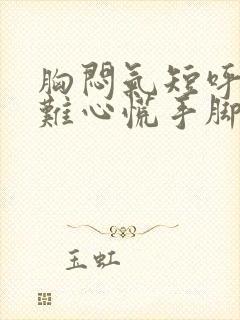 胸悶氣短呼
難心慌手腳
玉虹